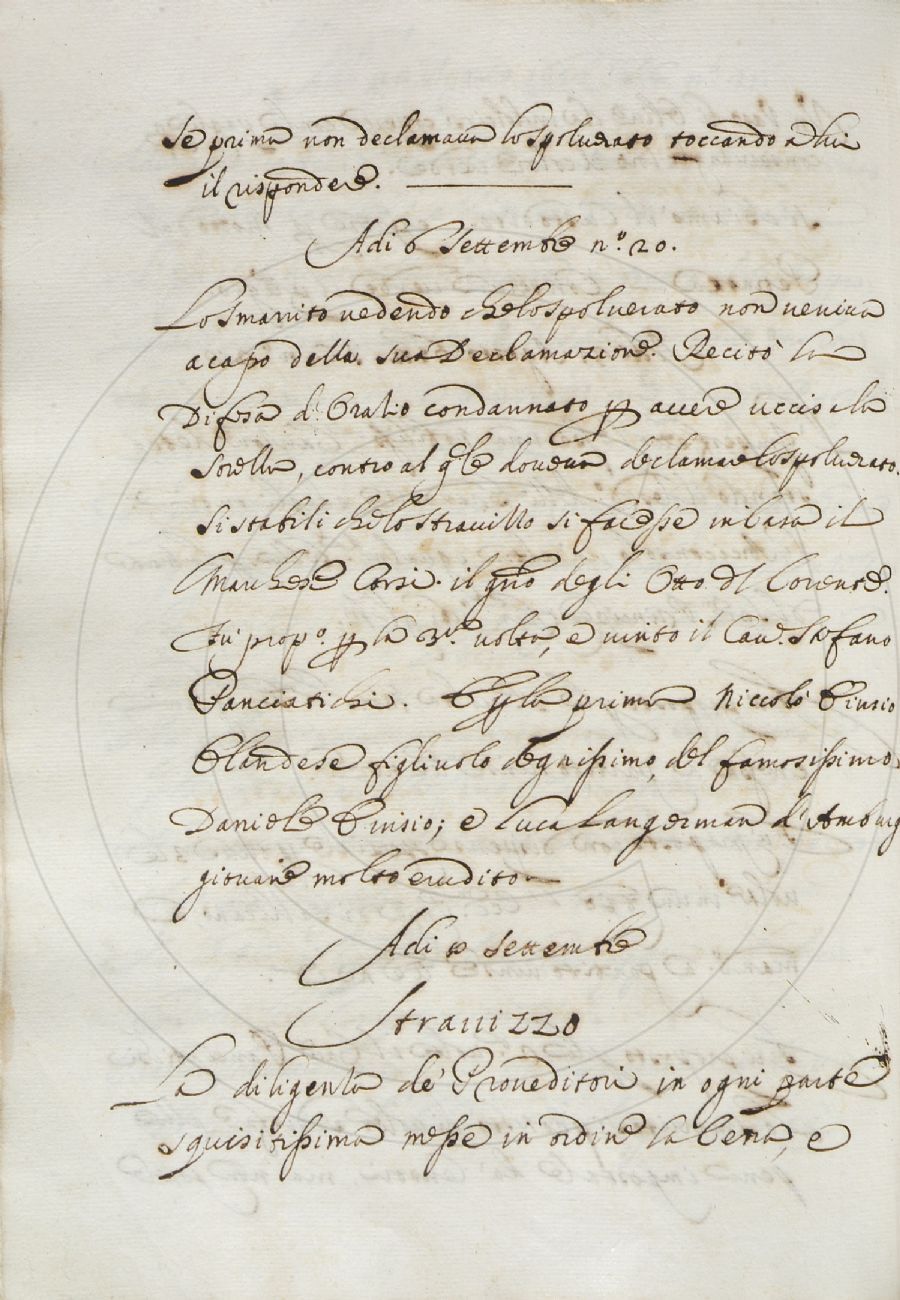 se prima non declamaua lo spoluerato toccando a lui
il rispondere.
Adi 6 Settembre n.º 20.
Lo smarrito uedendo che lo spoluerato non ueniua
a capo della sua Declamazione. Recitò la
Difesa d' Oratio condannato p auere ucciso la
sorella, contro al qle doueua declamare lo spoluerato.
Si stabilì che lo strauizzo si facesse in casa il
Marchese Corsi. il gno degli Otto dl Corente.
Fù propo. p la 3a. uolta, e uinto il Cau.e Stefano
Panciatichi. E p la prima Niccolò Einsio
Olandese figliuolo degnissimo, del famosissimo
Daniele Einsio; e Luca Langerman d' Amburg
giouane molto erudito
Adi 8 Settembre
Strauizzo
La diligenza de' Proueditori in ogni parte
squisitissima messe in ordine la Cena, e